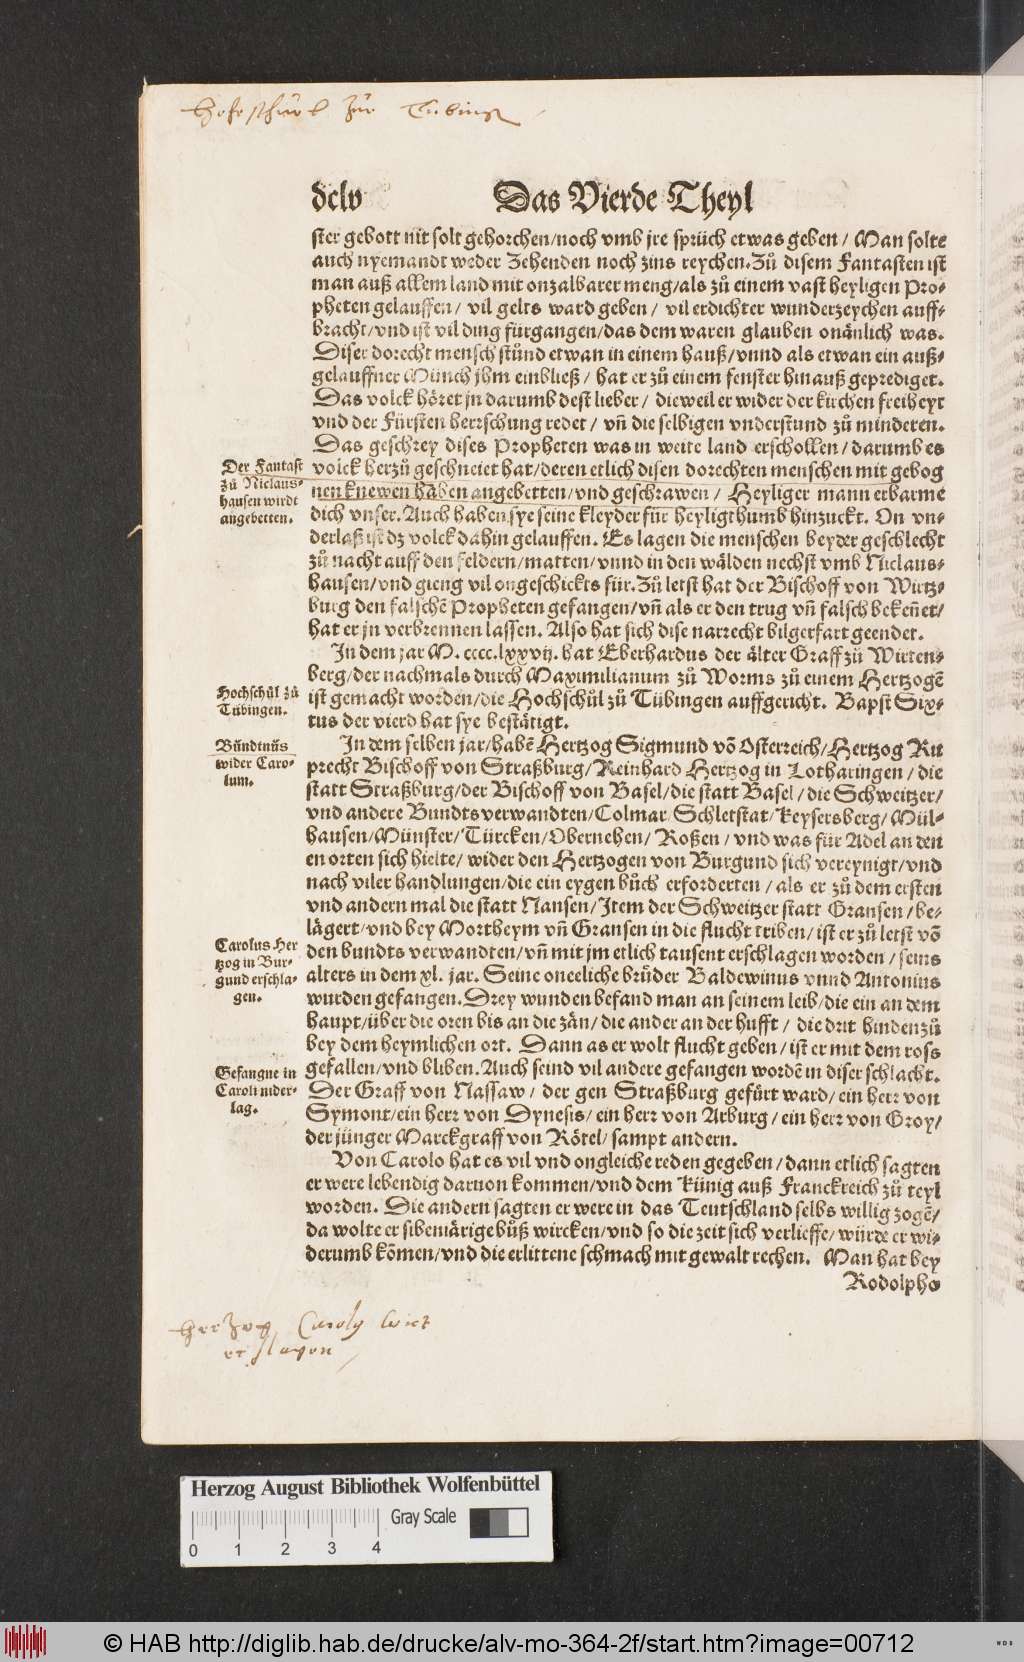 Hoheschuol zuo Tubing
dclv
Das Vierde Theyl
ster gebott nit solt gehorchen/noch vmb jre sprüch etwas geben/ Man solte
auch nyemandt weder Zehenden noch zins reychen. Zů disem Fantasten ist
man auß allem land mit onzalbarer meng/als zů einem vast heyligen Pro-
pheten gelauffen/ vil gelts ward geben/ vil erdichter wunderzeychen auff-
bracht/vnd ist vil ding fürgangen/das dem waren glauben onänlich was.
Diser dorecht mensch stůnd etwan in einem hauß/vnnd als etwan ein auß-
gelauffner Münch jhm einbließ/ hat er zů einem fenster hinauß geprediget.
Das volck höret jn darumb dest lieber/ dieweil er wider der kirchen freiheyt
vnd der Fürsten herrschung redet/ vñ die selbigen vnderstund zů minderen.
Das geschrey dises Propheten was in weite land erschollen/darumb es
volck herzů geschneiet hat/deren etlich disen dorechten menschen mit gebog
nen knewen haben angebetten/vnd geschrawen/ Heyliger mann erbarme
dich vnser. Auch haben sye seine kleyder für heyligthumb hinzuckt. On vn-
derlaß ist dz volck dahin gelauffen. Es lagen die menschen beyder geschlecht
zů nacht auff den feldern/matten/vnnd in den wälden nechst vmb Niclaus-
hausen/vnd gieng vil ongeschickts für. Zů letst hat der Bischoff von Wirtz-
burg den falschē Propheten gefangen/vñ als er den trug vñ falsch bekeñet/
hat er jn verbrennen lassen. Also hat sich dise narrecht bilgerfart geendet.
Der Fantast
zů Niclaus-
hausen wirdt
angebetten.
In dem jar M. cccc.lxxvij. hat Eberhardus der älter Graff zů Wirten-
berg/der nachmals durch Maximilianum zů Worms zů einem Hertzogē
ist gemacht worden/die Hochschůl zů Tübingen auffgericht. Bapst Six-
tus der vierd hat sye bestätigt.
Hochschůl zů
Tübingen.
In dem selben jar/habē Hertzog Sigmund vō Osterreich/Hertzog Ru
precht Bischoff von Straßburg/Reinhard Hertzog in Lotharingen/die
statt Straßburg/der Bischoff von Basel/die statt Basel/die Schweitzer/
vnd andere Bundtsverwandten/Colmar/Schletstat/Keysersberg/Mül-
hausen/Münster/Türcken/Obernehen/ Roßen/vnd was für Adel an den
en orten sich hielte/ wider den Hertzogen von Burgund sich vereynigt/vnd
nach viler handlungen/die ein eygen bůch erforderten/als er zů dem ersten
vnd andern mal die statt Nansen/Item der Schweitzer statt Gransen/be-
lägert/vnd bey Mortheym vñ Gransen in die flucht triben/ist er zů letst vō
den bundts verwandten/vñ mit jm etlich tausent erschlagen worden/seins
alters in dem xl. jar. Seine oneeliche brüder Baldewinus vnnd Antonius
wurden gefangen. Drey wunden befand man an seinem leib/die ein an dem
haupt/über die oren bis an die zän/die ander an der hufft/ die drit hindenzů
bey dem heymlichen ort. Dann as er wolt flucht geben/ist er mit dem ross
gefallen/vnd bliben. Auch seind vil andere gefangen wordē in diser schlacht.
Der Graff von Nassaw/ der gen Straßburg gefürt ward/ein herr von
Symont/ein herr von Dynesis/ein herr von Arburg/ein herr von Groy/
der jünger Marckgraff von Rötel/sampt andern.
Bündtnůs
wider Caro-
lum.
Carolus Her
tzog in Bur-
gund erschla-
gen.
Gefangne in
Caroli nider-
lag.
Von Carolo hat es vil vnd ongleiche reden gegeben/dann etlich sagten
er were lebendig daruon kommen/vnd dem Künig auß Franckreich zů teyl
worden. Die andern sagten er were in das Teutschland selbs willig zogē/
da wolte er sibenjärige bůß wircken/vnd so die zeit sich verlieffe/würde er wi-
derumb kōmen/vnd die erlittene schmach mit gewalt rechen. Man hat bey
Rodolpho
Herzog Caroly wirt
erslagen
Herzog August Bibliothek Wolfenbüttel
Gray Scale
0 1 2 3 4
© HAB http://diglib.hab.de/drucke/alv-mo-364-2f/start.htm?image=00712